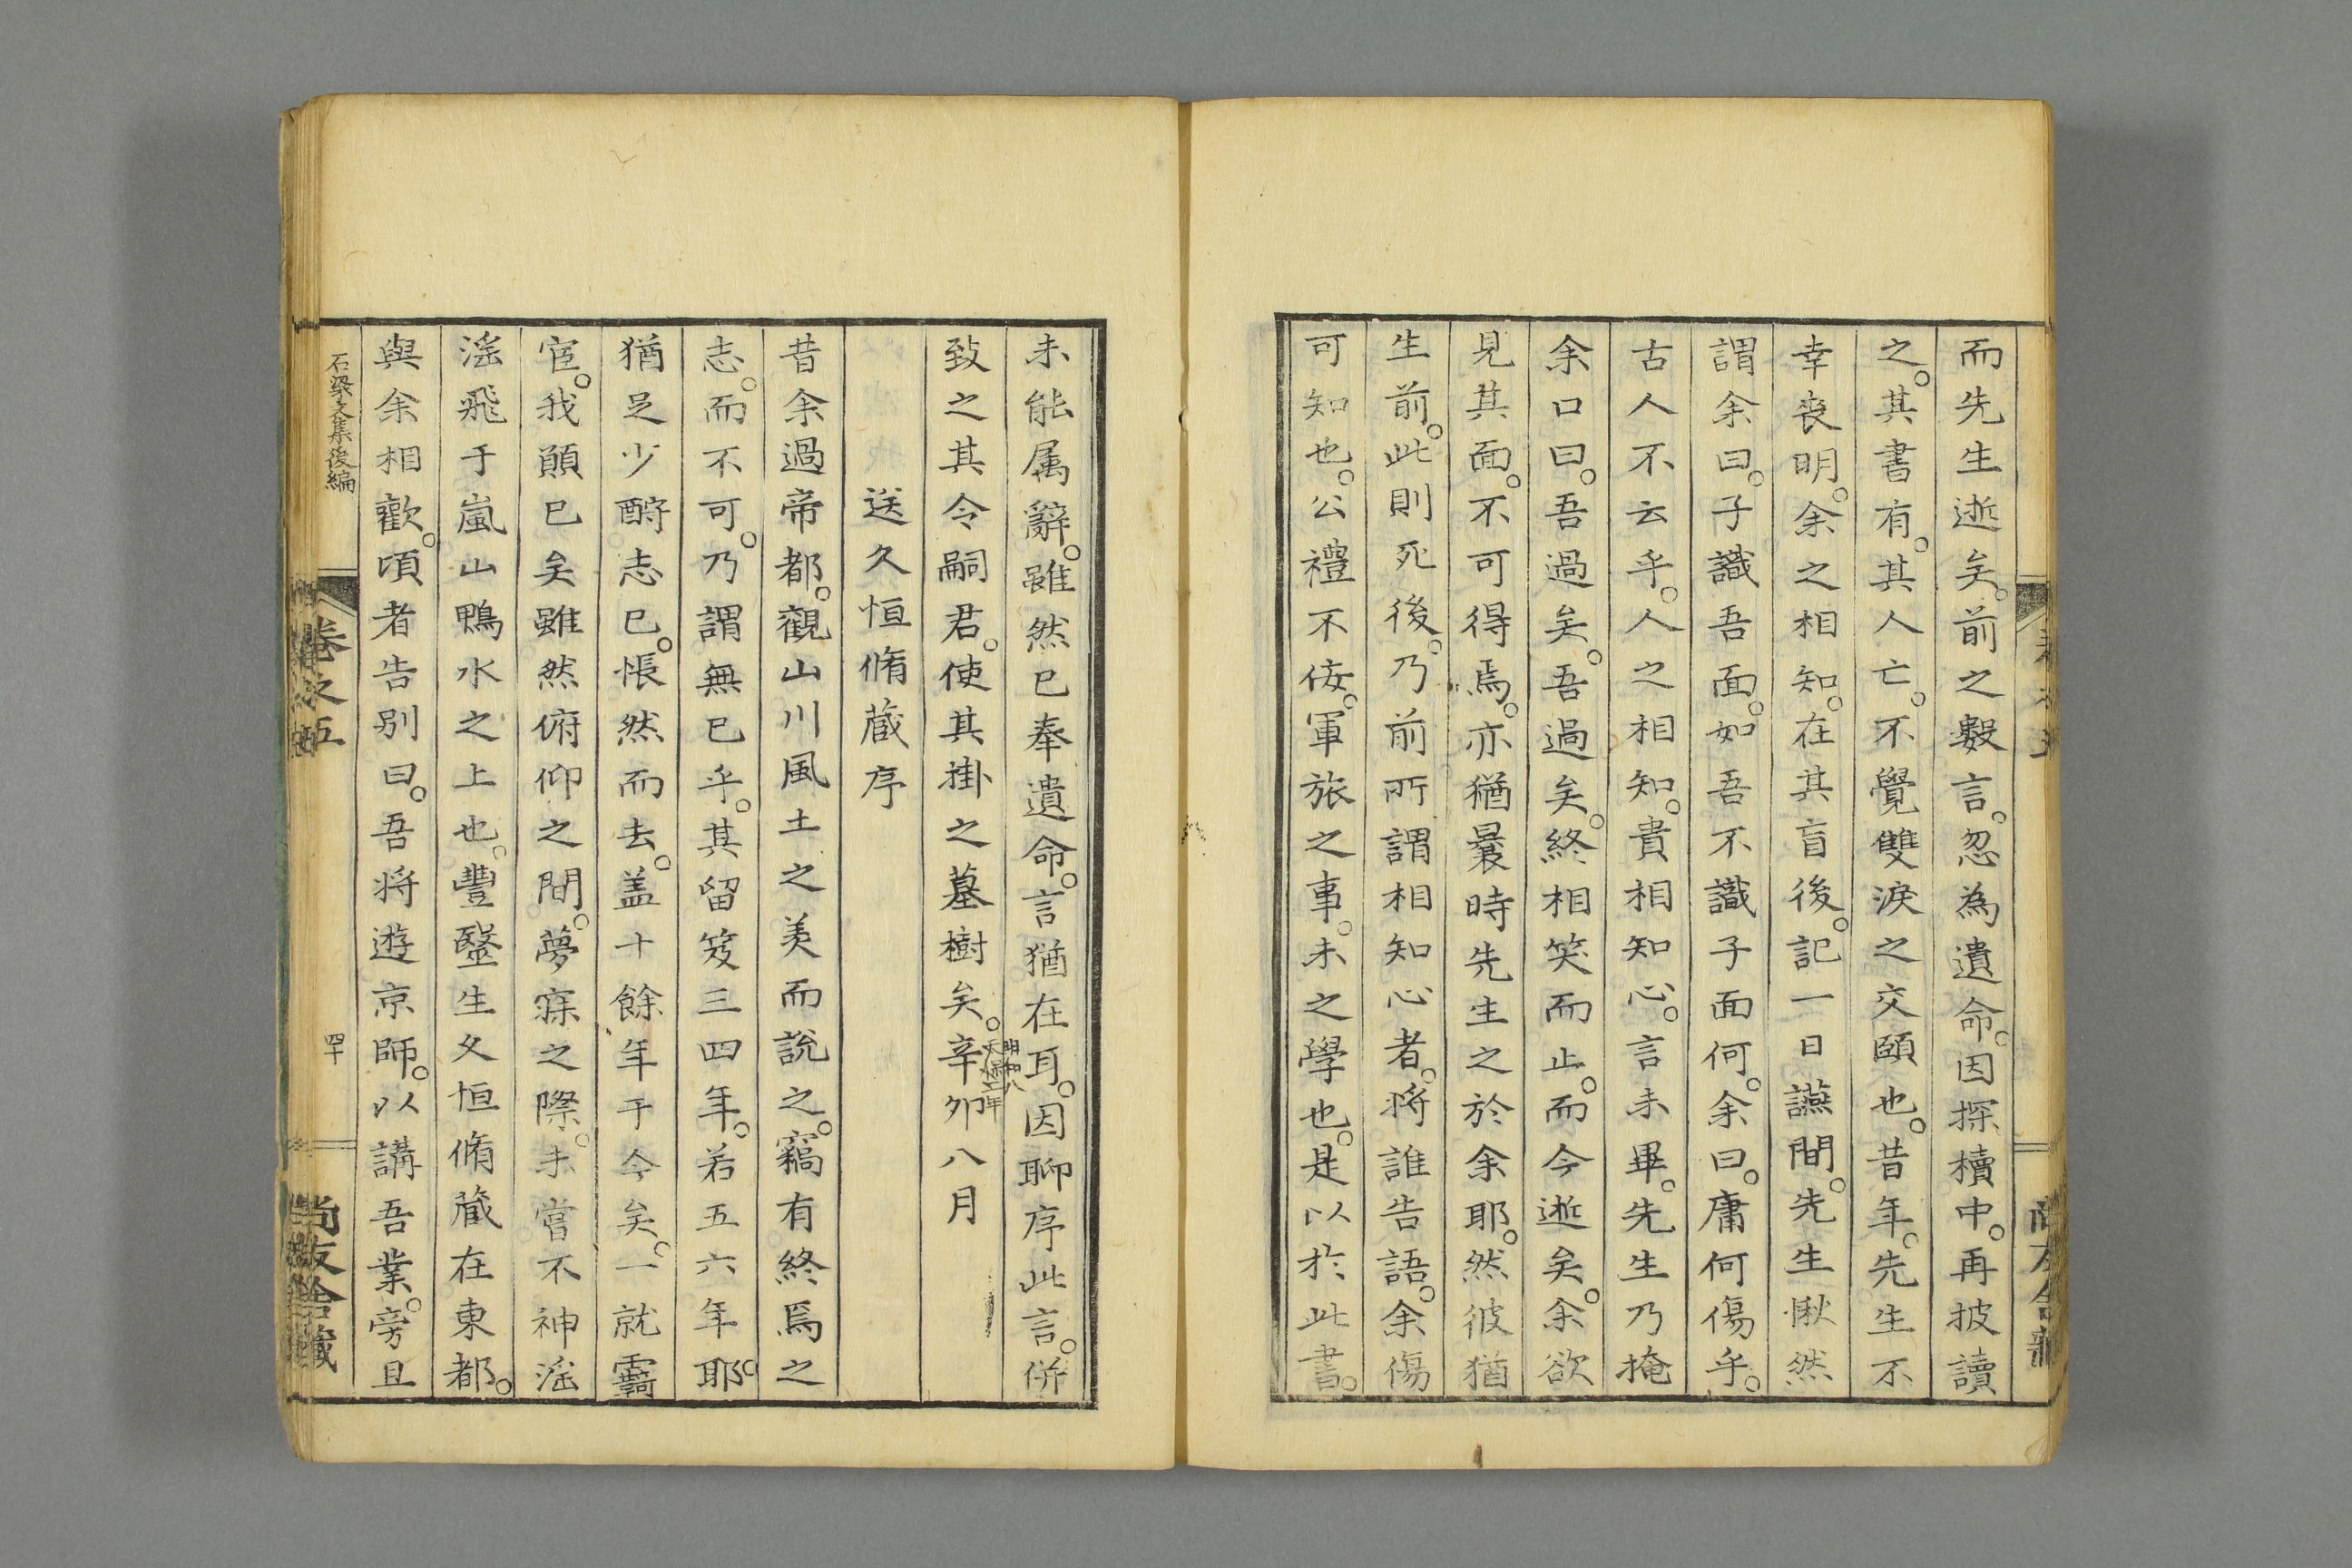 而先生逝矣。前之數言。忽為遺命。因探櫝中。再披讀
之。其書有。其人亡。不覺雙淚之交頤也。昔年。先生不
幸喪明。余之相知。在其盲後。記一日讌間。先生愀然
謂余曰。子識吾面。如吾不識子面何。余曰。庸何傷乎。
古人不云乎。人之相知。貴相知心。言未畢。先生乃掩
余口曰。吾過矣。吾過矣。終相笑而止。而今逝矣。余欲
見其面。不可得焉。亦猶曩時先生之於余耶。然彼猶
生前。此則死後。乃前所謂相知心者。将誰告語。余傷
可知也。公禮不佞。軍旅之事。未之學也。是以於此書。
未能属辭。雖然已奉遺命。言猶在耳。因聊序此言。併
致之其令嗣君。使其掛之墓樹矣。辛卯八月
明和八
送久恒脩蔵序
昔余過帝都。觀山川風土之美而說之。竊有終焉之
志。而不可。乃謂無已乎。其留笈三四年。若五六年耶。
猶足少酹志已。悵然而去。盖十餘年于今矣。一就羇
宦。我願已矣雖然俯仰之間。夢寐之際。未嘗不神滛
滛飛于嵐山鴨水之上也。豐毉生久恒脩蔵在東都。
與余相歡。頃者告別曰。吾将遊京師。以講吾業。旁且
石梁文集後編
卷之五
四十
尚友舎藏